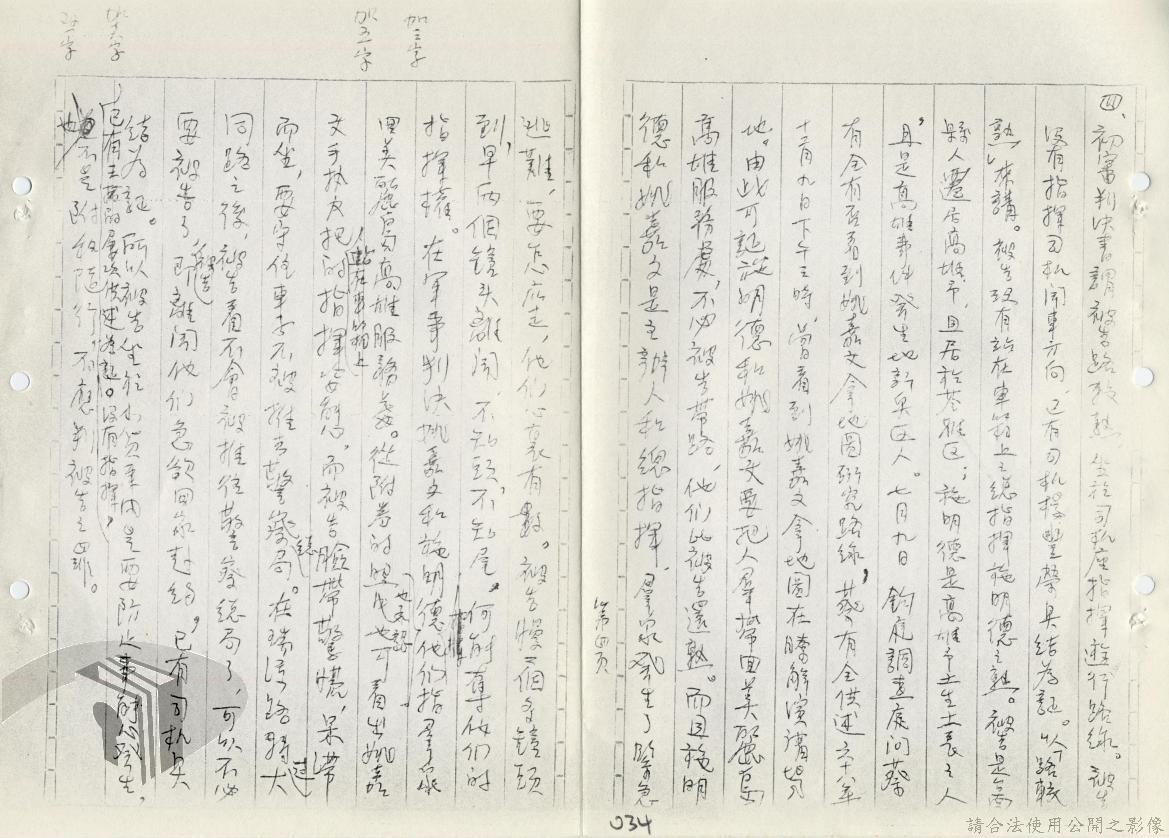 四、初審判決書謂被告路政熟、坐於司机座指揮遊行路線。被告
沒有指揮司机開車方向,已有司机樓豐榮具結為証。以「路較
熟」來講。被告沒有站在車箱上之總指揮施明德之熟。被告是高
縣人遷居高雄市,且居於苓雅區;施明德是高雄市土生土長之人
且是高雄事件發生地新興區人。七月九日 鈞庭調查庭問蔡
有全有否看到姚嘉文拿地圖研究路線,蔡有全供述六十八年
十二月九日下午三時,曾看到姚嘉文拿地圖在瞭解演講場
地。由此可証施明德和姚嘉文要把人羣帶回美麗島
高雄服務處,不必被告帶路,他們比被告還熟。而且施明
德和姚嘉文是主辦人和總指揮,羣眾發生了緊急
第四頁
逃難,要怎麼走,他們心裏有數。被告慢一個交鏡頭
到,早兩個鏡頭離開,不知頭,不知尾,何能奪他們的
指揮權。在軍事判決姚嘉文和施明德他們指揮羣眾
回美麗島高雄服務處。從附卷的照片也可看出姚嘉
也承認
文手執皮把的指揮姿態,而被告臉帶驚慌,呆滯
站在車箱上
而坐,要守住車子不被推去警察局。在瑞源路轉大
同路之後,被告看不會被推往警察總局了,可以不必
要被告了,已離開他們急欲回家赴約,已有司机具
結為証。所以被告坐於小貨車內是要防止事件發生,
已有王茵的屢次供述為証。沒有指揮,
也不是附和隨行,不應判被告之罪。
加三字
加五字
034
請合法使用公開之影像